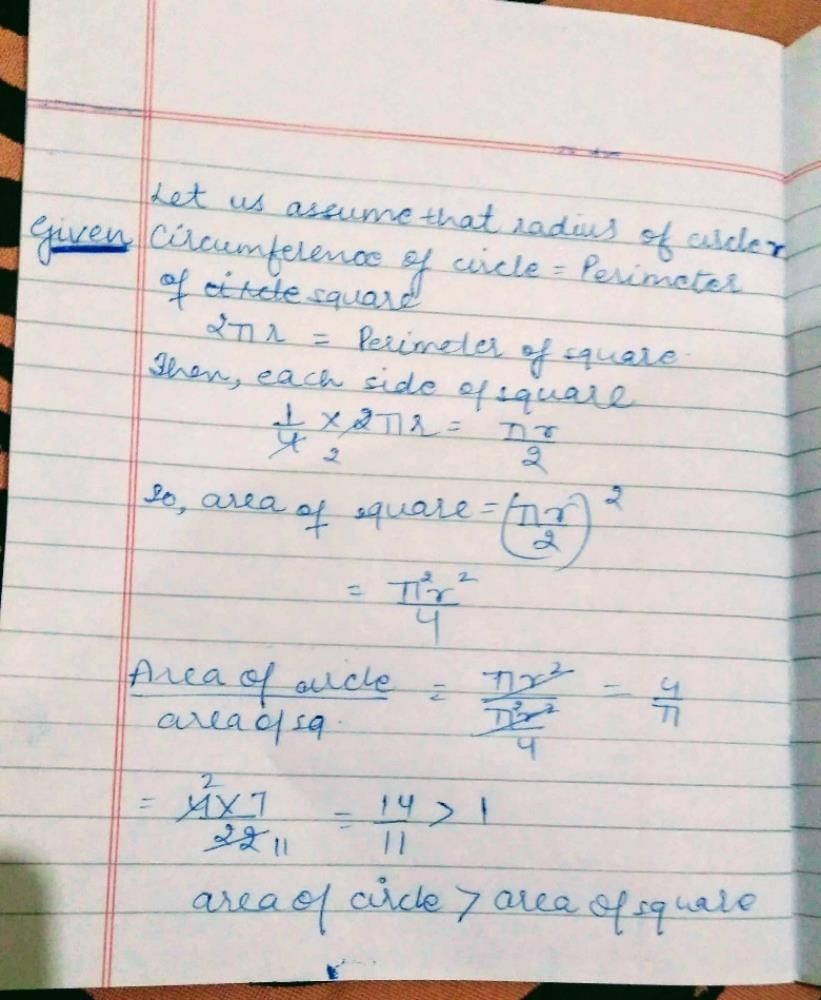 Let us assume that radius of circle r
Given Circumference of circle = Perimeter
of circle square
2πr = Perimeter of square.
Then, each side of square
1/4 2 × 2πr = πr/2
So, area of square = (πr/2)²
= π²r²/4
Area of circle/area of sq. = πr²/(π²r²/4) = 4/π
= 2 4×7/22 11 = 14/11 > 1
area of circle > area of square